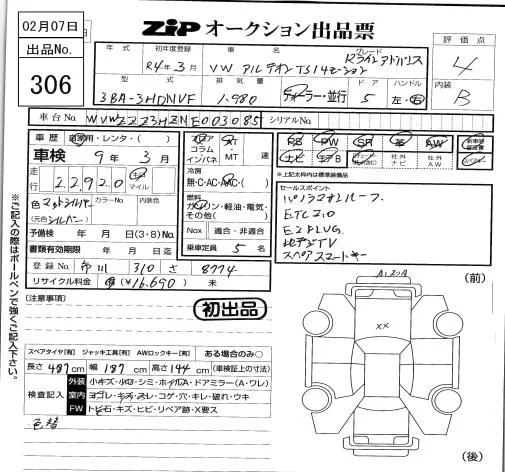 02月07日
出品No.
306
ZIP オークション出品票
年式 初年度登録 車名 グレード 評価点
R4年3月 VW アルテオン TSI4モーション Rラインアドバンス 4
型式 排気量 ドア ハンドル 内装
3BA-3HDNVF 1,980 ディーラー・並行 5 左・右 B
車台No. WVWZZZ3HZNE003085 シリアルNo.
車歴 自家用・レンタ・( )
車検 9年3月
走行 22920 km マイル
色 マットシルバー カラーNo. 内装色
(元色 シルバー)
予備検 年 月 日(3・8)No.
書類有効期限 年 月 日迄
登録No. 市川 310 さ 8774
リサイクル料金 済(¥16,690) 未
フロア AT
コラム
インパネ MT 速
冷房
無・C・AC・AAC・( )
燃料
ガソリン・軽油・電気・
その他( )
Nox 適合・非適合
乗車定員 5 名
PS PW SR 革 AW
ナビ エアB 社外ナビ 社外AW
新車時保証書
※上記太枠内は標準装備品
セールスポイント
パノラマサンルーフ
ETC2.0
地デジTV
スペアスマートキー
(注意事項)
初出品
(前)
XX
(後)
スペアタイヤ[有] ジャッキ工具[有] AWロックキー[有] ある場合のみ○
長さ 487cm 幅 187cm 高さ 144cm (車検証上の寸法)
検査記入
外装 小キズ・小凹・シミ・ホイルA・ドアミラー(A・ワレ)
室内 ヨゴレ・キズ・スレ・コゲ・穴・キレ・破れ・ウキ
FW トビ石・キズ・ヒビ・リペア跡・X要ス
色替
※ご記入の際はボールペンで強くご記入下さい。